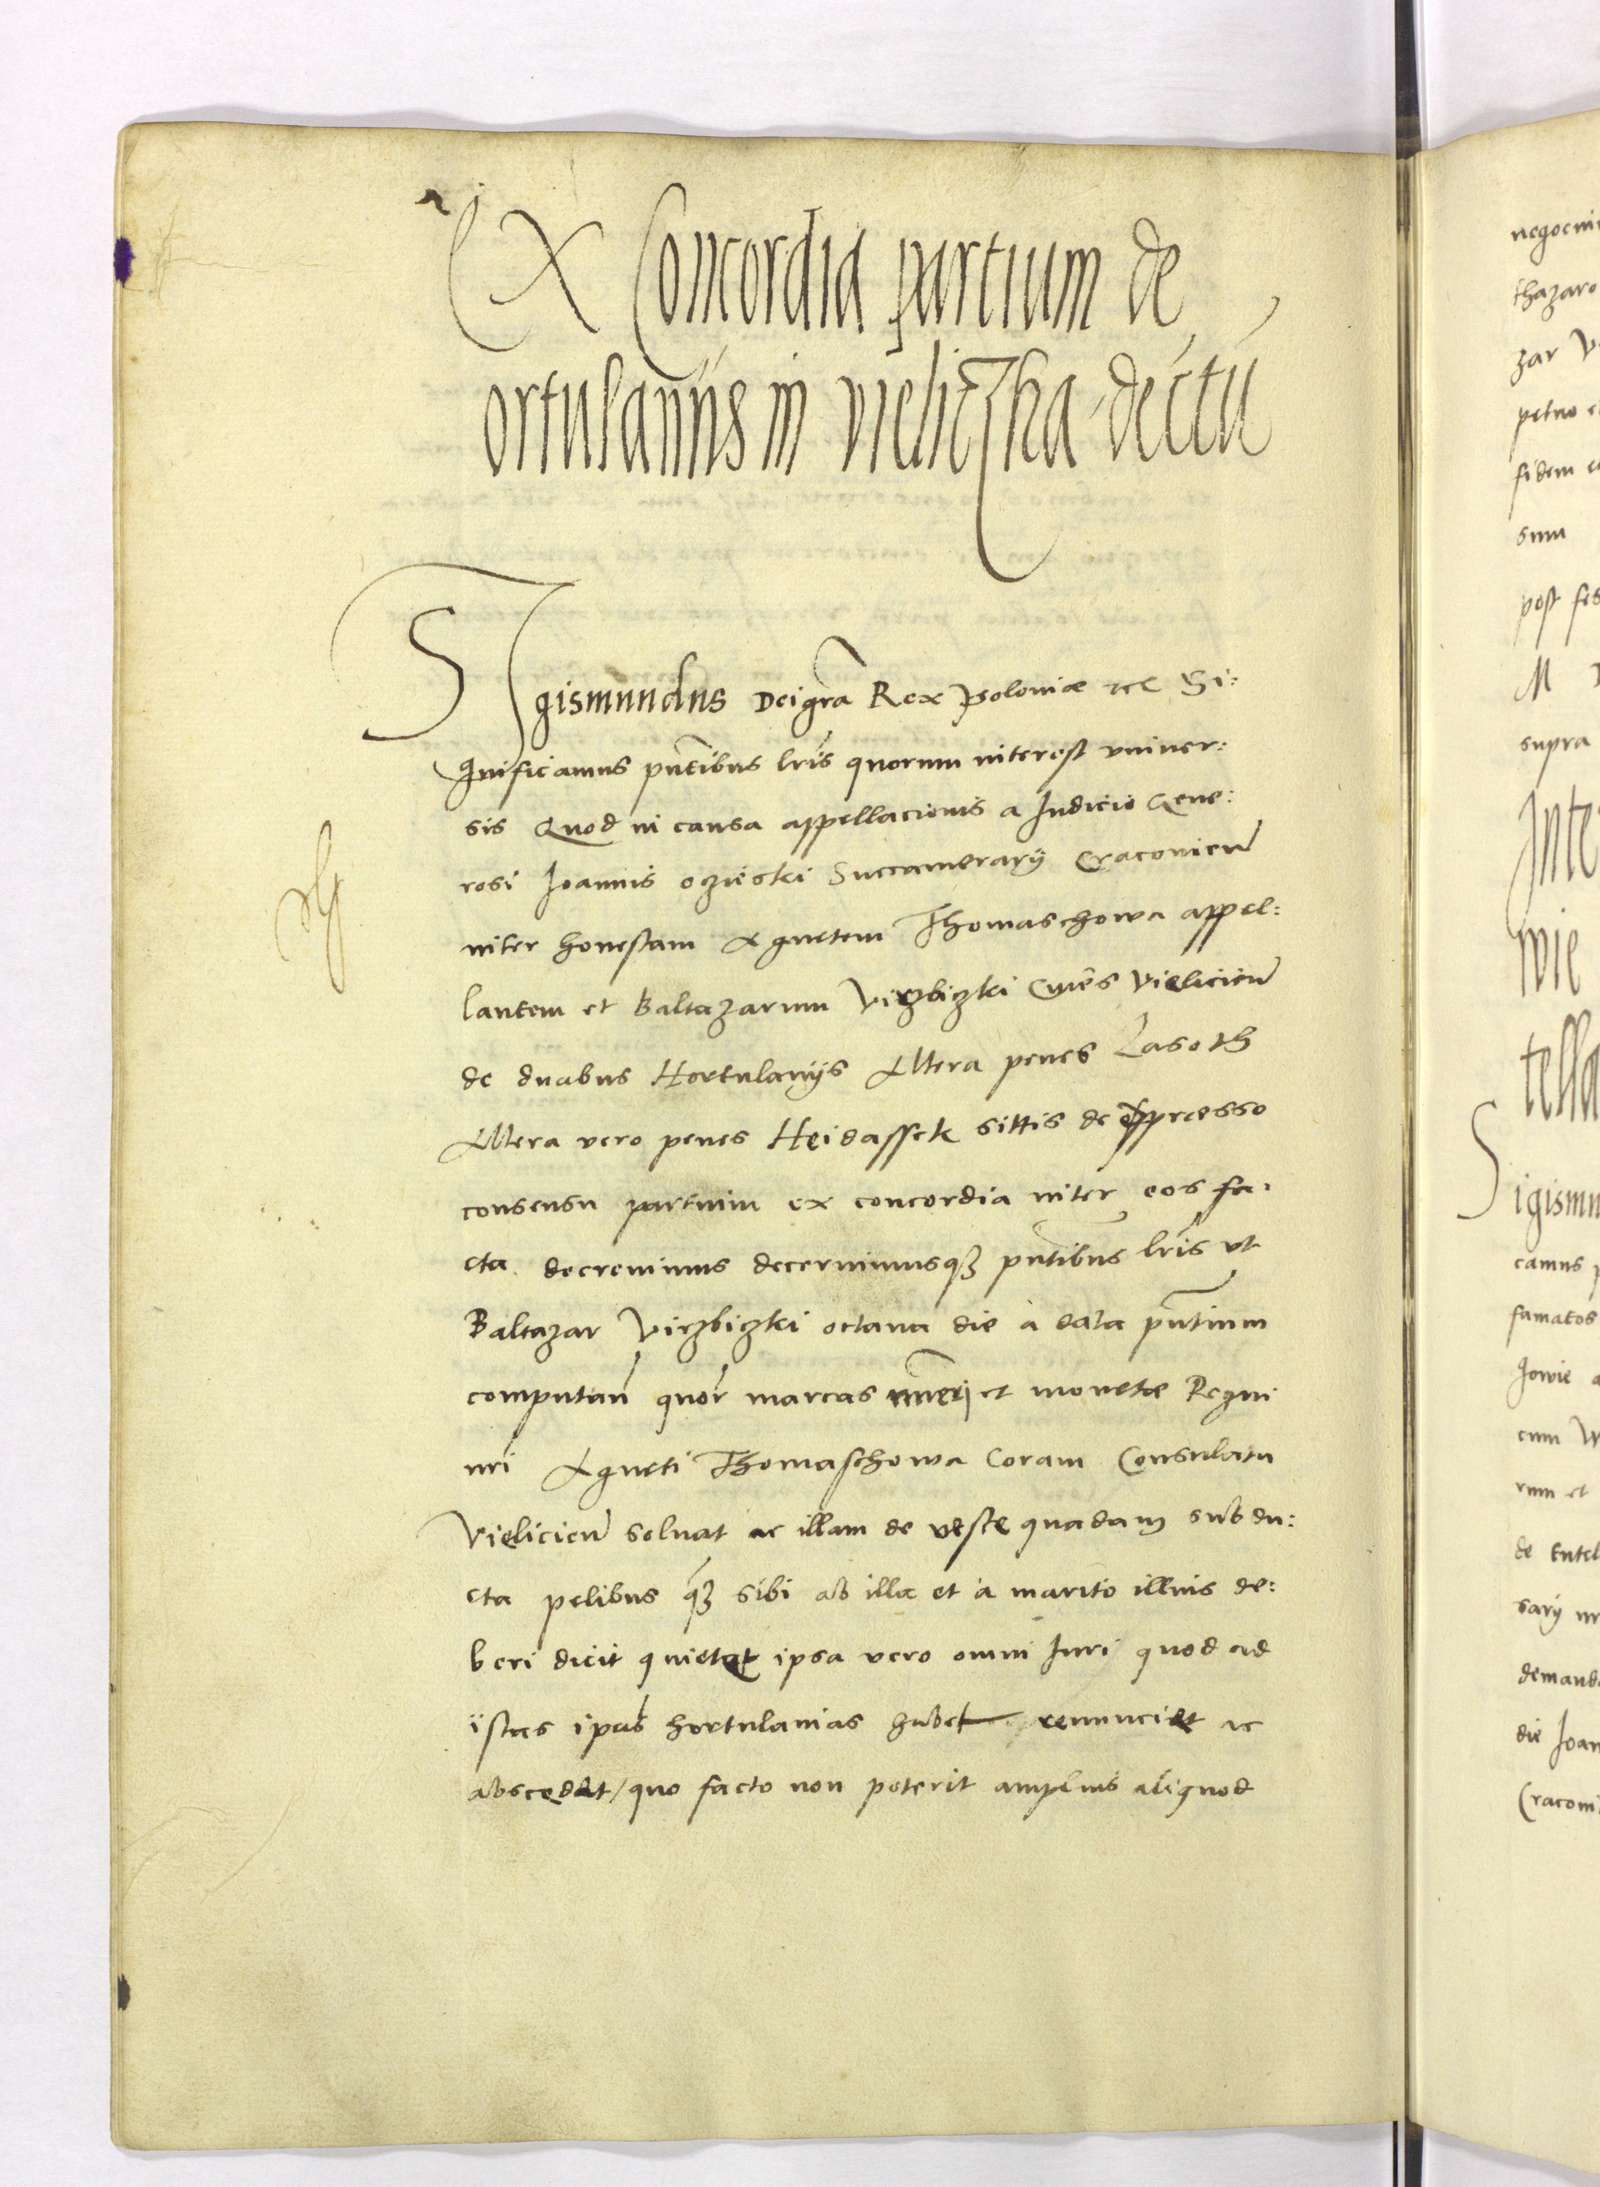 Ex Concordia partium de
ortulaniis in vieliczka dectu
Sigismundus Dei gra Rex Poloniæ etc Si:
gnificamus pntibus lris quorum interest vniver:
sis Quod in causa appellacionis a Judicio Gene:
rosi Joannis ozieski Succamerarij Cracovien
inter honestam Agnetem Thomaschowa appel:
lantem et Baltazarum Virzbiczki Cives Vielicien
de duabus Hortulanijs Altera penes Lasoth
Altera vero penes Heidasseck sittis de expresso
consensu partium ex concordia inter eos fa:
cta decrevimus decernimusqz pntibus lris vt
Baltazar Virzbiczki octava die a data pntium
computan quor marcas nmeri et monetæ Regni
nri Agneti Thomaschowa Coram Consulatu
Vielicien soluat ac illam de veste quadam subdu:
cta pelibus qz sibi ab illa et a marito illius de:
beri dicit quietat ipsa vero omni Juri quod ad
istas ipas hortulanias habet renunciet ac
abscedat / quo facto non poterit amplius aliquod
negocii
thazaro
zar V
petuo e
fidem
sum
post fes
M
supra
Inte
wie
tella
Sigismu
camus p
famatos
Jowie a
cum W
rum et
de Entel
sarij nr
demand
die Joan
Cracovi